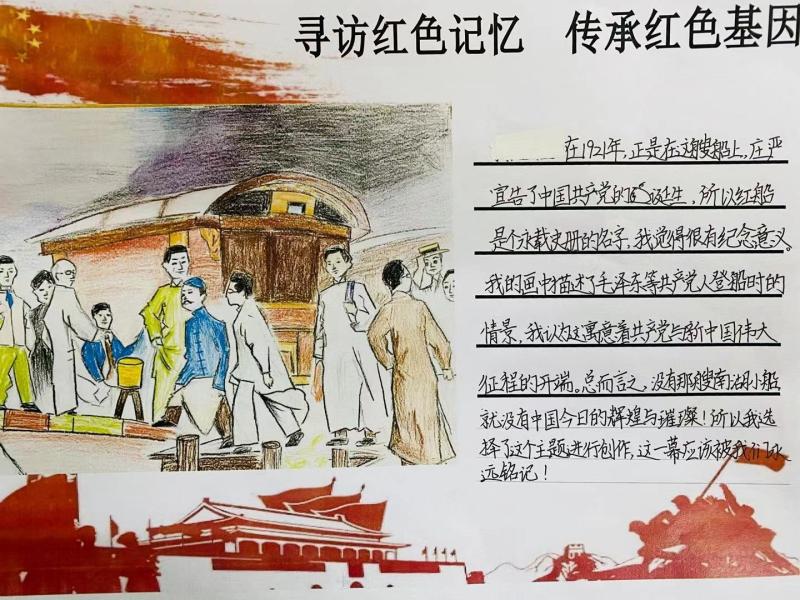 寻访红色记忆 传承红色基因
在1921年,正是在这艘船上,庄严
宣告了中国共产党的诞生,所以红船
是个永载史册的名字,我觉得很有纪念意义。
我的画中描述了毛泽东等共产党人登船时的
情景,我认为这寓意着共产党与新中国伟大
征程的开端。总而言之,没有那艘南湖小船
就没有中国今日的辉煌与璀璨!所以我选
择了这个主题进行创作,这一幕应该被我们永
远铭记!